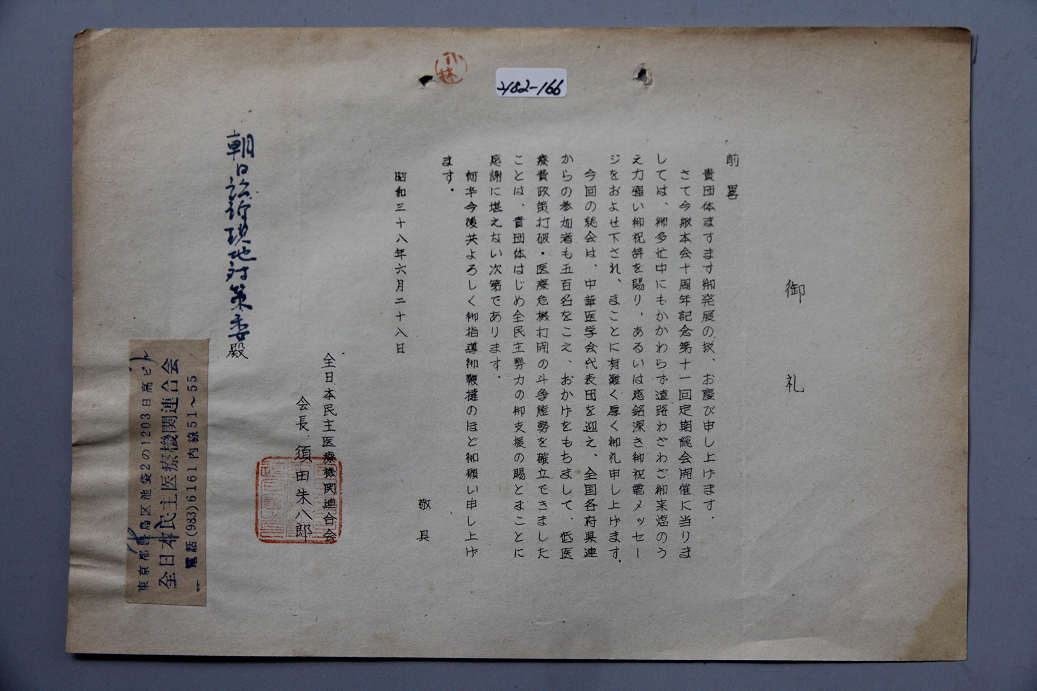 2182-166
小林
御礼
前畧
貴団体ますます御発展の段、お慶び申し上げます。
さて今般本会十周年記念第十一回定期総会開催に当りま
しては、御多忙中にもかかわらず遠路わざわざ御来臨のう
え力強い御祝辞を賜り、あるいは感銘深き御祝電メッセー
ジをおよせ下され、まことに有難く厚く御礼申し上げます。
今回の総会は、中華医学会代表団を迎え、全国各府県連
からの参加者も五百名をこえ、おかげをもちまして、低医
療費政策打破・医療危機打開の斗争態勢を確立できました
ことは、貴団体はじめ全民主勢力の御支援の賜とまことに
感謝に堪えない次第であります。
何卒今後共よろしく御指導御鞭撻のほど御願い申し上げ
ます。
敬具
昭和三十八年六月二十八日
全日本民主医療機関連合会
会長 須田朱八郎
朝日訴訟現地対策委殿
東京都豊島区池袋2の1203日高ビル
全日本民主医療機関連合会
電話(983)6161内線51~55